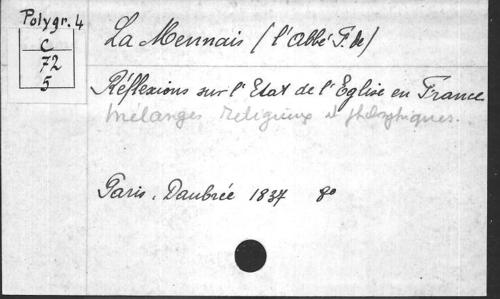 Polygr. 4
C
72
5
La Mennais (l'abbé F. de)
Réflexions sur l'Etat de l'Eglise en France
Mélanges religieux et philosophiques.
Paris. Daubrée 1837 8º